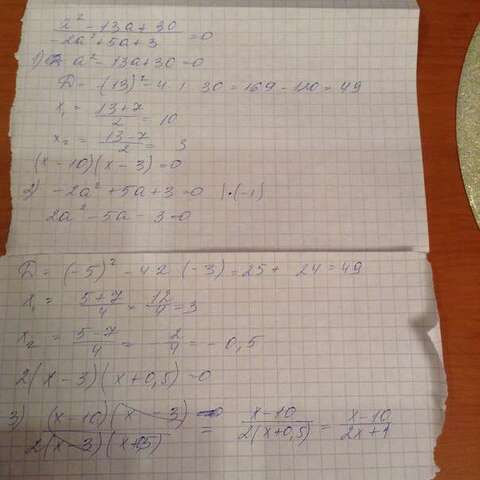 a² - 13a + 30 / -2a² + 5a + 3 = 0
1) a² - 13a + 30 = 0
D = (13)² - 4 · 1 · 30 = 169 - 120 = 49
x₁ = (13+7)/2 = 10
x₂ = (13-7)/2 = 3
(x - 10)(x - 3) = 0
2) -2a² + 5a + 3 = 0 | · (-1)
2a² - 5a - 3 = 0
D = (-5)² - 4 2 (-3) = 25 + 24 = 49
x₁ = (5+7)/4 = 12/4 = 3
x₂ = (5-7)/4 = -2/4 = -0,5
2(x - 3)(x + 0,5) = 0
3) (x-10)(x-3) / 2(x-3)(x+0,5) = x-10 / 2(x+0,5) = x-10 / 2x+1